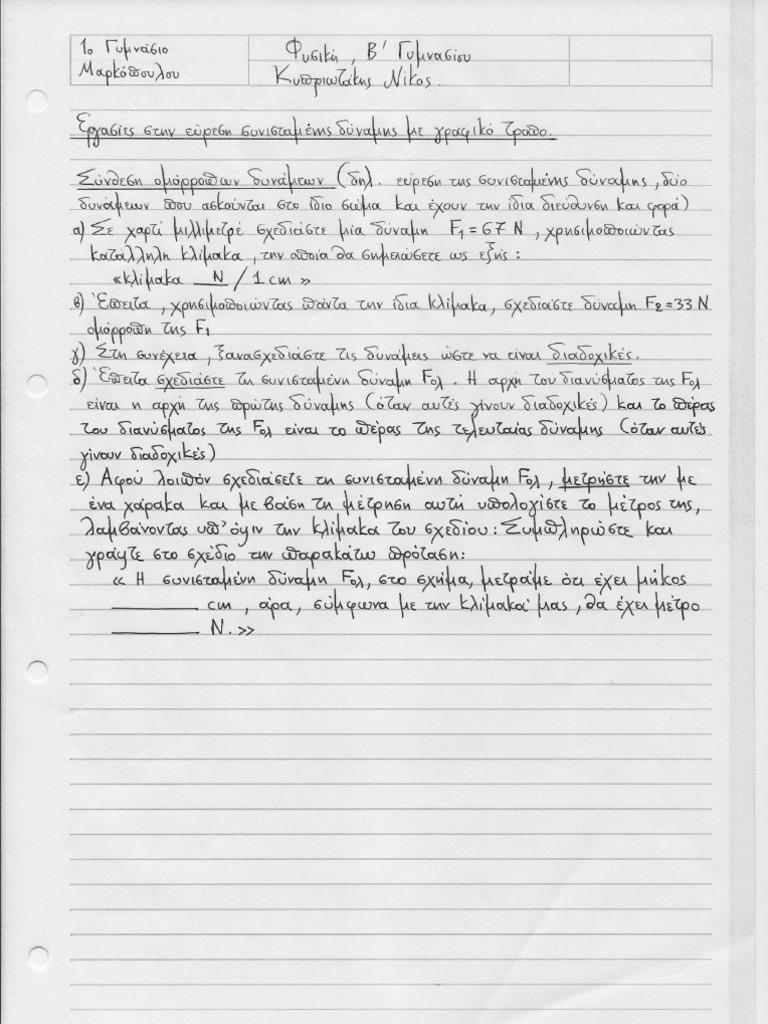 1ο Γυμνάσιο
Μαρκόπουλου
Φυσική, Β' Γυμνασίου
Κυπριωτάκης Νίκος.
Εργασίες στην εύρεση συνισταμένης δύναμης με γραφικό τρόπο.
Σύνθεση ομόρροπων δυνάμεων (δηλ. εύρεση της συνισταμένης δύναμης, δύο
δυνάμεων που ασκούνται στο ίδιο σώμα και έχουν την ίδια διεύθυνση και φορά)
α) Σε χαρτί μιλλιμετρέ σχεδιάστε μία δύναμη F1 = 67 N, χρησιμοποιώντας
κατάλληλη κλίμακα, την οποία θα σημειώσετε ως εξής:
«κλίμακα __N__ / 1 cm»
β) Έπειτα, χρησιμοποιώντας πάντα την ίδια κλίμακα, σχεδιάστε δύναμη F2 = 33 N
ομόρροπη της F1
γ) Στη συνέχεια, ξανασχεδιάστε τις δυνάμεις ώστε να είναι διαδοχικές.
δ) Έπειτα σχεδιάστε τη συνισταμένη δύναμη Fολ. Η αρχή του διανύσματος της Fολ
είναι η αρχή της πρώτης δύναμης (όταν αυτές γίνουν διαδοχικές) και το πέρας
του διανύσματος της Fολ είναι το πέρας της τελευταίας δύναμης (όταν αυτές
γίνουν διαδοχικές)
ε) Αφού λοιπόν σχεδιάσετε τη συνισταμένη δύναμη Fολ, μετρήστε την με
ένα χάρακα και με βάση τη μέτρηση αυτή υπολογίστε το μέτρος της,
λαμβάνοντας υπ' όψιν την κλίμακα του σχεδίου: Συμπληρώστε και
γράψτε στο σχέδιο την παρακάτω πρόταση:
« Η συνισταμένη δύναμη Fολ, στο σχήμα, μετράμε ότι έχει μήκος
________ cm, άρα, σύμφωνα με την κλίμακά μας, θα έχει μέτρο
________ N.»